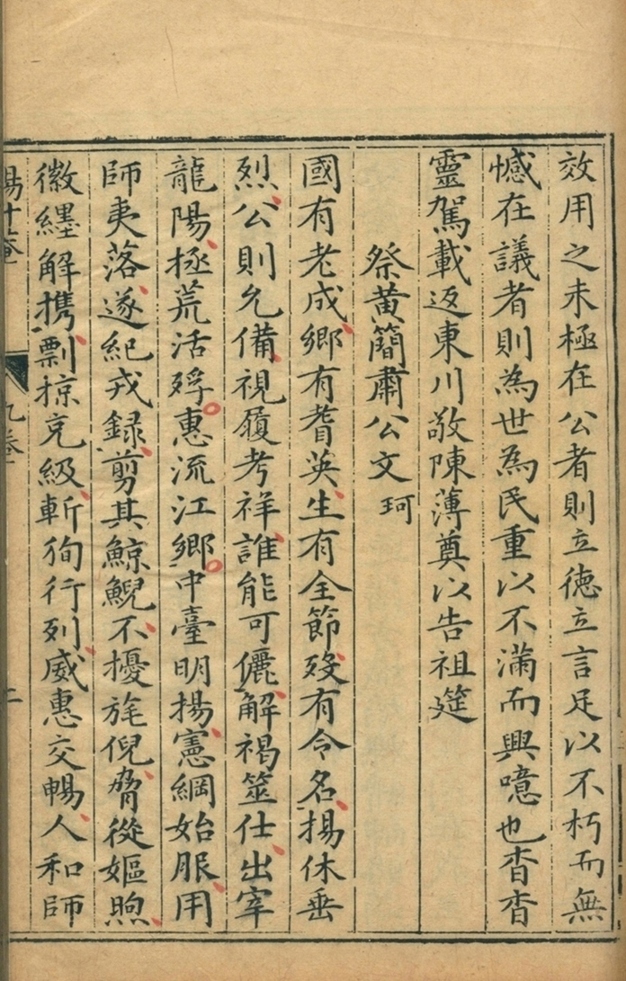 效用之未極在公者則立德立言足以不朽而無
憾在議者則為世為民重以不滿而興噫也杳杳
靈駕載返東川敬陳薄奠以告祖筵
祭黄簡肅公文 珂
國有老成鄉有耆英生有全節歿有令名揚休垂
烈公則允備視履考祥誰能可儷解褐筮仕出宰
龍陽拯荒活殍惠流江鄉中臺明揚憲綱始服用
師夷落遂紀戎録剪其鯨鯢不擾旄倪脅從嫗煦
徽纆解攜剽掠克級斬狥行列威惠交暢人和師